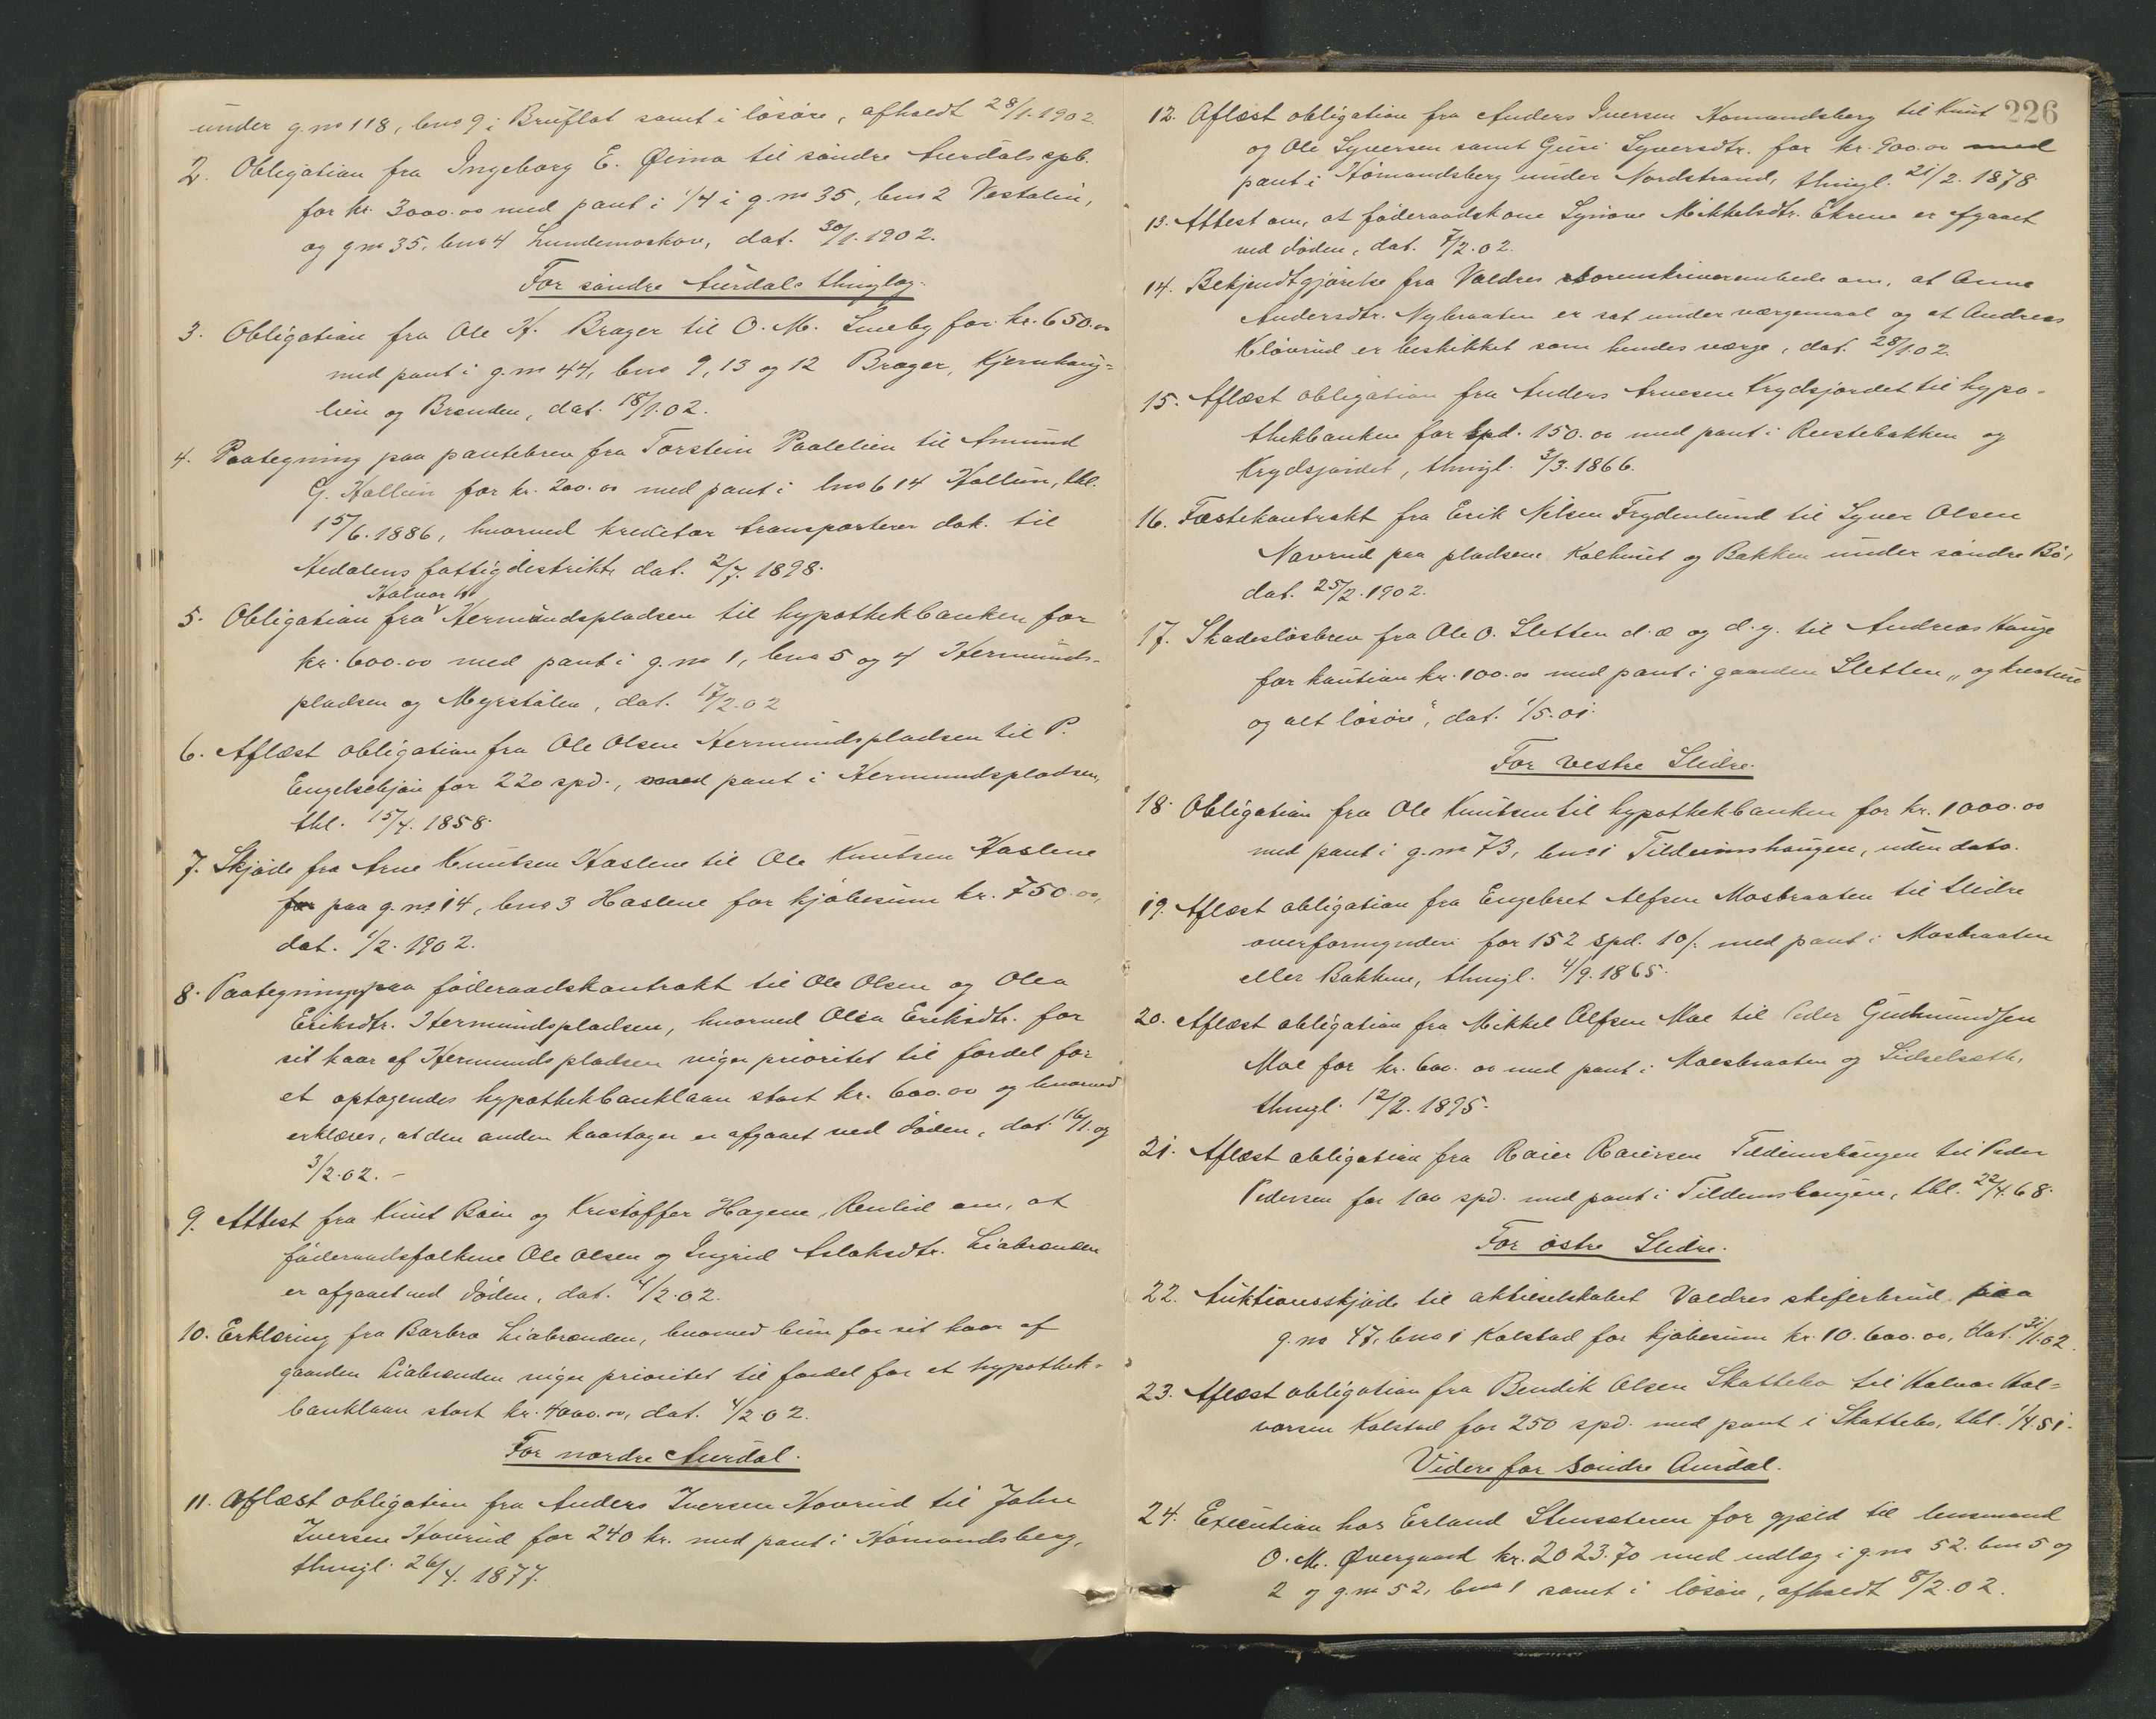 under g.no 118, bno 9 i Bruflat samt i løsøre, afholdt 28/1. 1902
2. Obligation fra Ingeborg E. Øima til søndre Aurdals spb.
for kr. 3000.00 med pant i 1/4 i g.no 35, bno 2 Vestalin,
og gno 35, bno 4 Lundemoskov, dat. 30/1. 1902.
For søndre Aurdals thinglag.
3. Obligation fra Ole H. Brager til O. M. Smeby for kr. 650.00
med pant i g.no 44, bno 9, 13 og 12 Brager, Kjernhaug-
lien og Brænden, dat. 18/1. 02.
4. Paategning paa pantebrev fra Torstein Paalelien til Amund
G. Hallum for kr. 200.00 med pant i lno 614 Hallum, thl.
15/6. 1886, hvorved kreditor transporterer dok. til
Hedalens fattigdistrikt dat. 2/7. 1898.
Halvor H.
5. Obligation fra Hermundspladsen til hypothekbanken for
kr. 600.00 med pant i g.no 1, bno 5 og 4 Hermunds-
pladsen og Myrstølen, dat. 17/2. 02
6. Aflæst obligation fra Ole Olsen Hermundspladsen til P.
for 220 spd., med pant i Hermundspladsen,
thl. 15/4. 1858.
7. Skjøde fra Arne Knutsen Haslene til Ole Knutsen Haslene
for paa g.no 14, bno 3 Haslene for kjøbesum kr. 750.00,
dat. 1/2. 1902.
8. Paategning paa føderaadskontrakt til Ole Olsen og Olea
Eriksdtr. Hermundspladsen, hvorved Olea Eriksdtr. for
sit kaar af Hermundspladsen viger prioritet til fordel for
et optagendes hypothekbanklaan stort kr. 600.00 og hvorved
erklæres, at den anden kaartager er afgaaet ved døden, dat. 16/1. og
3/2. 02. -
9. Attest fra Knut Bøen og Kristoffer Hagene, Renlid om, at
føderaadsfolkene Ole Olsen og Ingrid Aslaksdtr. Liabrænden
er afgaaet ved døden, dat. 4/2. 02.
10. Erklæring fra Barbro Liabrænden, hvorved hun for sit kaar af
gaarden Liabrænden viger prioritet til fordel for et hypothek-
banklaan stort kr. 4000.00, dat. 4/2 02.
For nordre Aurdal.
11. Aflæst obligation fra Anders Iversen Hovrud til John
Iversen Hovrud for 240 kr. med pant i Hömandsberg,
thingl. 26/4. 1877.
226
12. Aflæst obligation fra Anders Iversen Homandsberg til Knut
og Ole Syversen samt Guri Syversdtr. for kr. 900.00 med
pant i Hömandsberg under Nordstrand, thingl. 21/2. 1878
13. Attest om, at føderaadskone Synøve Mikkelsdtr. Ekrene er afgaaet
ved døden, dat. 7/2. 02.
14. Bekjendtgjørelse fra Valdres sorenskriverembede om, at Anne
Andersdtr. Nybraaten er sat under værgemaal og at Andreas
Kløvrud er beskikket som hendes værge, dat. 28/1. 02.
15. Aflæst obligation fra Anders Arnesen Krydsjordet til hypo-
thekbanken for spd. 150.00 med pant i Reistebakken og
Krydsjordet, thingl. 3/3. 1866.
16. Fæstekontrakt fra Erik Nilsen Frydenlund til Syver Olsen
Navrud paa pladsene Kolhuset og Bakken under søndre Bø,
dat. 25/2. 1902.
17. Skadesløsbrev fra Ole O. Sletten d.æ og d.y. til Andreas Hauge
for kaution kr. 100.00 med pant i gaarden Sletten „og kreature
og alt løsøre“, dat. 1/5. 01.
For vestre Slidre.
18. Obligation fra Ole Knutsen til hypothekbanken for kr. 1000.00
med pant i g.no 73, bno 1 Tildeimshaugen, uden dato.
19. Aflæst obligation fra Engebret Alfsen Mosbraaten til Slidre
overformynderi for 152 spd. 10/. med pant i Mosbraaten
eller Bakkene, thingl. 4/9. 1865.
20. Aflæst obligation fra Mikkel Olfsen Moe til Peder Gudmundsen
Moe for kr. 600.00 med pant i Moesbraaten og Sidselsæth,
thingl. 12/2. 1895.
21. Aflæst obligation fra Roier Roiersen Tildeimshaugen til Peder
Pedersen for 100 spd. med pant i Tildeimshaugen, thl. 22/4. 68.
For østre Slidre.
22. Auktionsskjøde til aktieselskabet Valdres skiferbrud paa
g.no 47, bno 1 Kolstad for kjøbesum kr. 10.600.00, dat. 31/1. 02.
23. Aflæst obligation fra Bendik Olsen Skattebo til Halvor Hal-
vorsen Kolstad for 250 spd. med pant i Skattebo, thl. 1/4. 51.
Videre for søndre Aurdal.
24. Execution hos Erland Stensæteren for gjæld til lensmand
O. M. Øvergaard kr. 2023.70 med udlæg i g.no 52. bno 5 og
2 og g.no 52, bno 1 samt i løsøre, afholdt 8/2. 02.